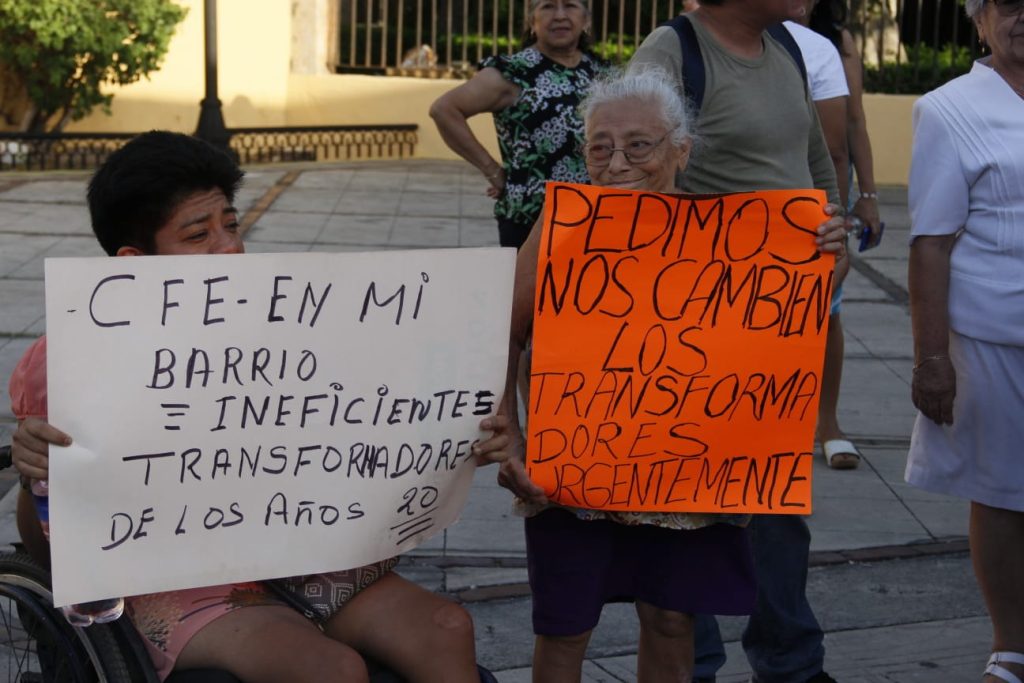 - CFE - EN MI
BARRIO
= INEFICIENTES =
TRANSFORMADORES
DE LOS AÑOS 20
PEDIMOS
NOS CAMBIEN
LOS
TRANSFORMA
DORES
URGENTEMENTE